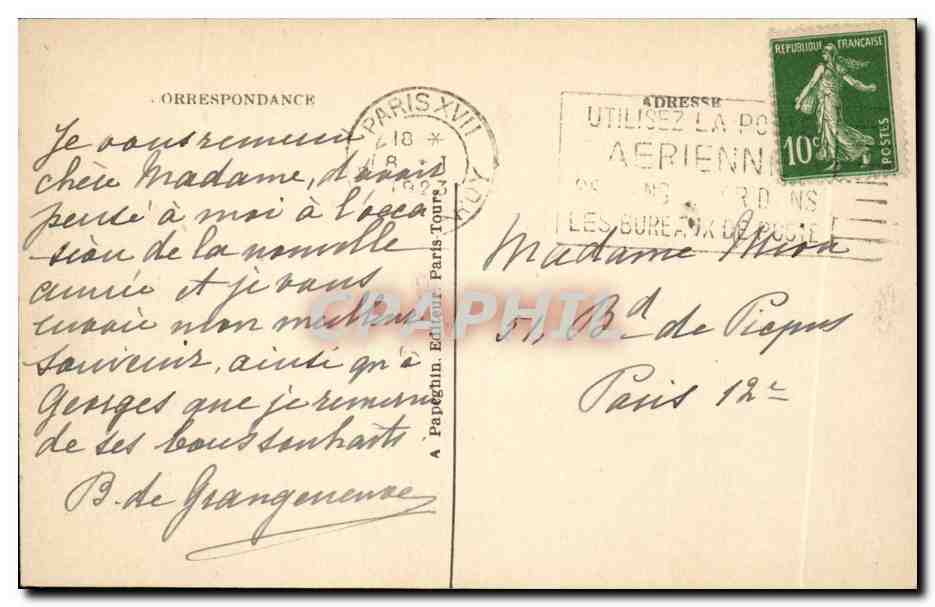 CORRESPONDANCE
Je vous remercie
chère Madame, d'avoir
pensé à moi à l'occa
sion de la nouvelle
année et je vous
envoie mon meilleur
souvenir, ainsi qu'à
Georges que je remercie
de ses bons souhaits.
B. de Grangeneuve
A Papeghin. Editeur. Paris-Tours.
PARIS XVII
18 *
8 . I
GUY
ADRESSE
UTILISEZ LA PO
AERIENN
LES BUREAUX DE POSTE
REPUBLIQUE FRANÇAISE
10c
POSTES
Madame
51, Bd de Picpus
Paris 12e
CRAPHIL